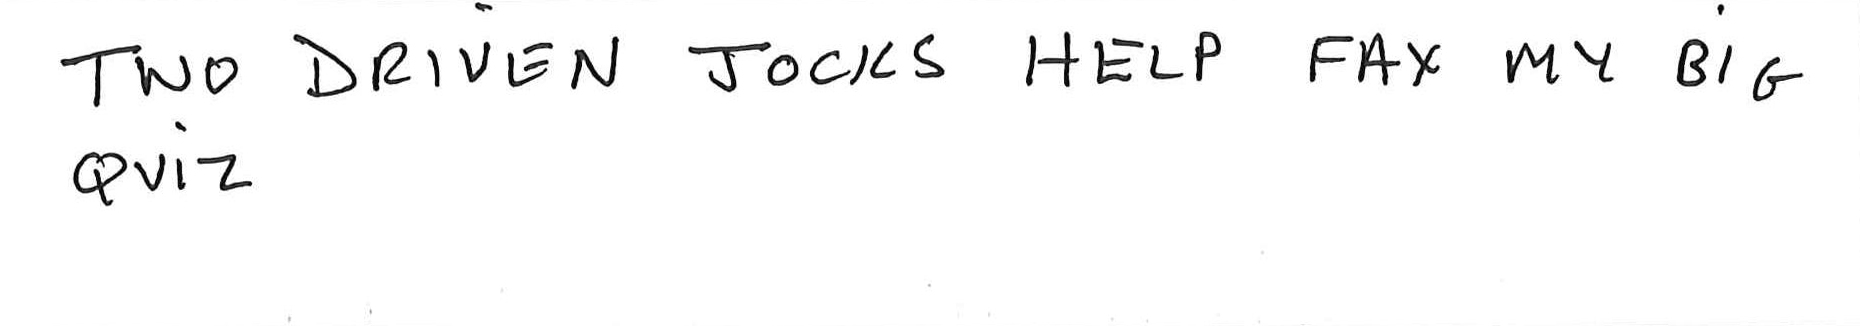 TWO DRIVEN JOCKS HELP FAX MY BIG
QUIZ